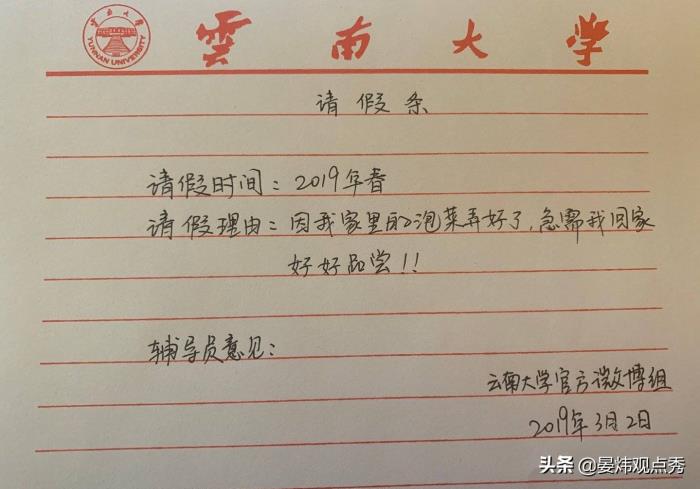 雲南大學
雲南大學
YUNNAN UNIVERSITY
请假条
请假时间：2019年春
请假理由：因我家里的泡菜弄好了，急需我回家
好好品尝！！
辅导员意见：
云南大学官方微博组
2019年3月2日
头条 @晏炜观点秀